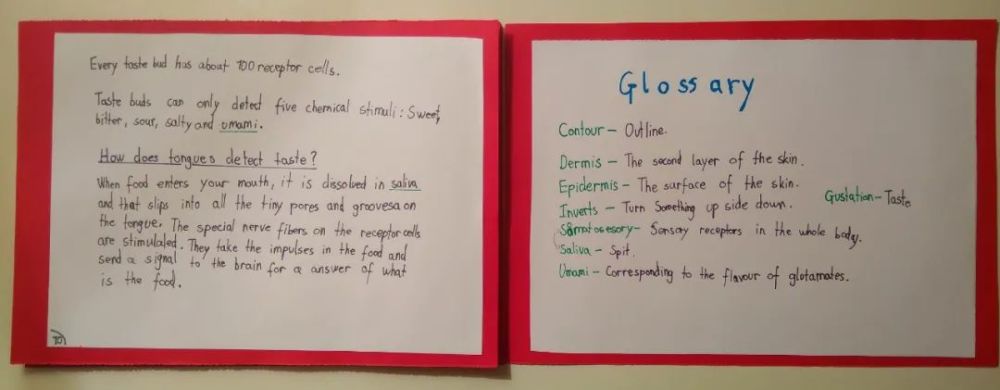 Every taste bud has about 100 receptor cells.
Taste buds can only detect five chemical stimuli: Sweet,
bitter, sour, salty and umami.
How does tongues detect taste?
When food enters your mouth, it is dissolved in saliva
and that slips into all the tiny pores and groovesa on
the tongue. The special nerve fibers on the receptor cells
are stimulated. They take the impulses in the food and
send a signal to the brain for a answer of what
is the food.
10
Glossary
Contour - Outline.
Dermis - The second layer of the skin.
Epidermis - The surface of the skin.
Inverts - Turn Something up side down.
Gustation - Taste
Somatosesory - Sensory receptors in the whole body.
Saliva - Spit.
Umami - Corresponding to the flavour of glotamates.